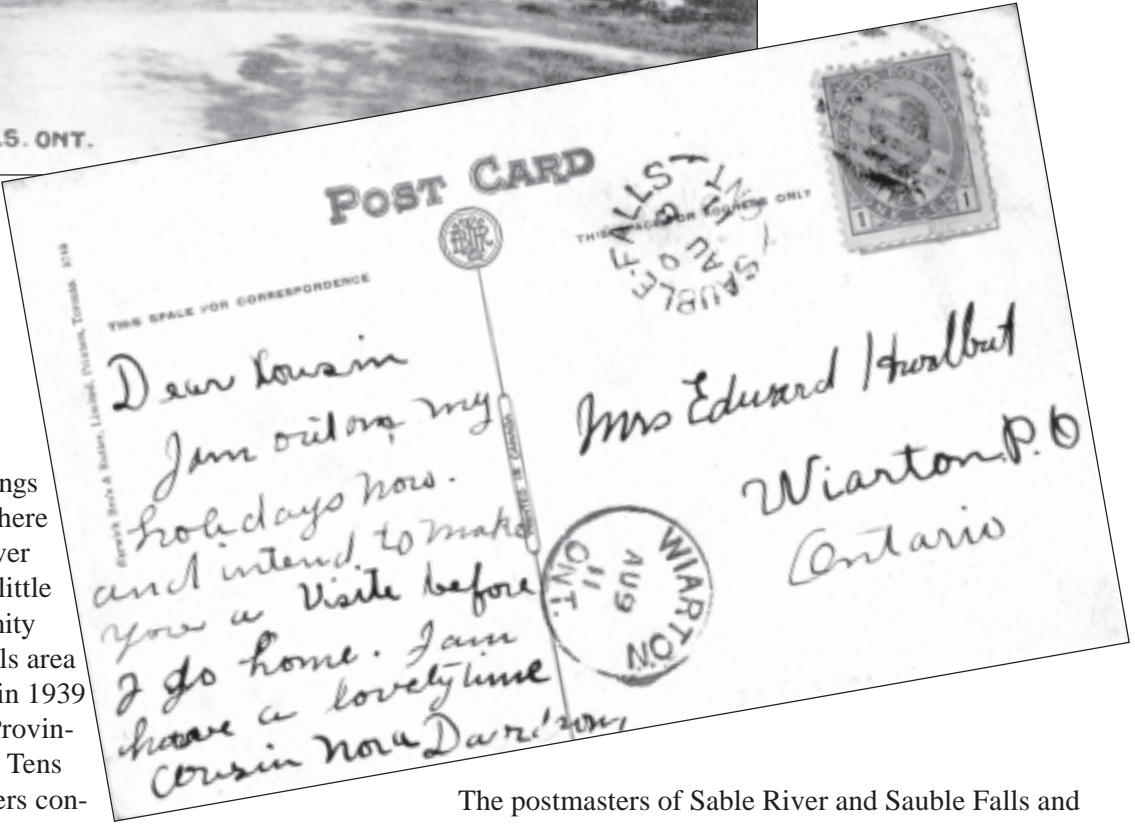 S. ONT.
POST CARD
THIS SPACE FOR CORRESPONDENCE
THIS SPACE FOR ADDRESS ONLY
SAUBLE-FALLS
AU
ONT
1 1
Dear Cousin
I am out on my
holidays now.
and intend to make
you a Visite before
I go home. I am
have a lovely time
Cousin Nora Davison
Mrs Edward Hurlbut
Wiarton P.O
Ontario
WIARTON
AUG
11
ONT.
ings
here
ver
little
nity
ls area
in 1939
Provin-
Tens
ers con-
The postmasters of Sable River and Sauble Falls and